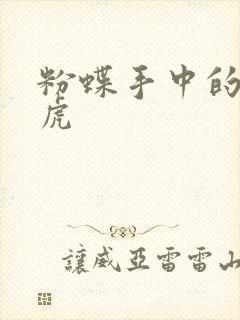 粉蝶手中的
虎
讓威亞雷雷山